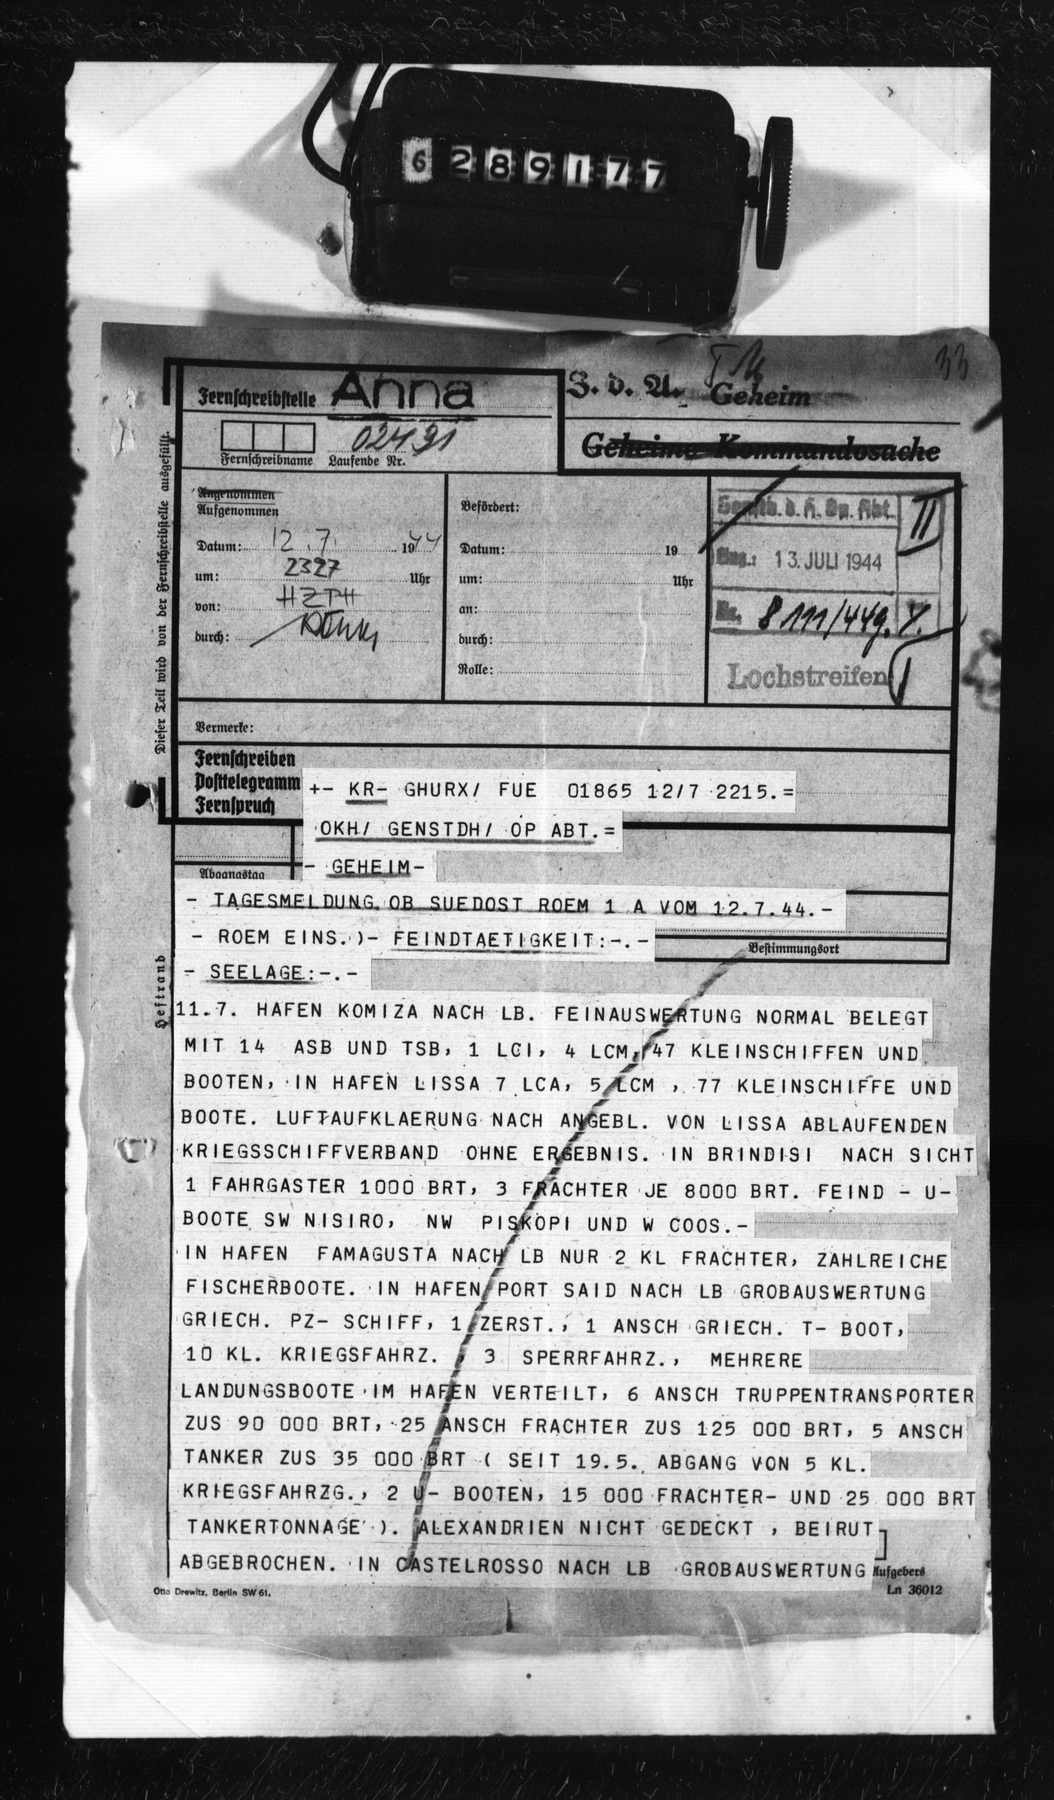 6289177
33
Fernschreibstelle Anna
Z. d. A. Geheim
Geheime Kommandosache
02491
Fernschreibname Laufende Nr.
Angenommen
Aufgenommen
Datum: 12.7. 1944
um: 2327 Uhr
von: HZPH
durch:
Befördert:
Datum: 19
um: Uhr
an:
durch:
Rolle:
Genstb. d. H. Op. Abt. II
Eing.: 13. JULI 1944
Nr. 8111/44g.
Lochstreifen
Dieser Teil wird von der Fernschreibstelle ausgefüllt.
Vermerke:
Fernschreiben
Posttelegramm
Fernspruch
+- KR- GHURX/ FUE 01865 12/7 2215.=
OKH/ GENSTDH/ OP ABT.=
- GEHEIM-
Abgangstag
- TAGESMELDUNG OB SUEDOST ROEM 1 A VOM 12.7.44.-
- ROEM EINS.)- FEINDTAETIGKEIT:-.-
Bestimmungsort
- SEELAGE:-.-
Heftrand
11.7. HAFEN KOMIZA NACH LB. FEINAUSWERTUNG NORMAL BELEGT
MIT 14 ASB UND TSB, 1 LCI, 4 LCM, 47 KLEINSCHIFFEN UND
BOOTEN, IN HAFEN LISSA 7 LCA, 5 LCM , 77 KLEINSCHIFFE UND
BOOTE. LUFTAUFKLAERUNG NACH ANGEBL. VON LISSA ABLAUFENDEN
KRIEGSSCHIFFVERBAND OHNE ERGEBNIS. IN BRINDISI NACH SICHT
1 FAHRGASTER 1000 BRT, 3 FRACHTER JE 8000 BRT. FEIND - U-
BOOTE SW NISIRO, NW PISKOPI UND W COOS.-
IN HAFEN FAMAGUSTA NACH LB NUR 2 KL FRACHTER, ZAHLREICHE
FISCHERBOOTE. IN HAFEN PORT SAID NACH LB GROBAUSWERTUNG
GRIECH. PZ- SCHIFF, 1 ZERST., 1 ANSCH GRIECH. T- BOOT,
10 KL. KRIEGSFAHRZ. , 3 SPERRFAHRZ., MEHRERE
LANDUNGSBOOTE IM HAFEN VERTEILT, 6 ANSCH TRUPPENTRANSPORTER
ZUS 90 000 BRT, 25 ANSCH FRACHTER ZUS 125 000 BRT, 5 ANSCH
TANKER ZUS 35 000 BRT ( SEIT 19.5. ABGANG VON 5 KL.
KRIEGSFAHRZG., 2 U- BOOTEN, 15 000 FRACHTER- UND 25 000 BRT
TANKERTONNAGE ). ALEXANDRIEN NICHT GEDECKT , BEIRUT
ABGEBROCHEN. IN CASTELROSSO NACH LB GROBAUSWERTUNG
Aufgebers
Otto Drewitz, Berlin SW 61.
Ln 36012